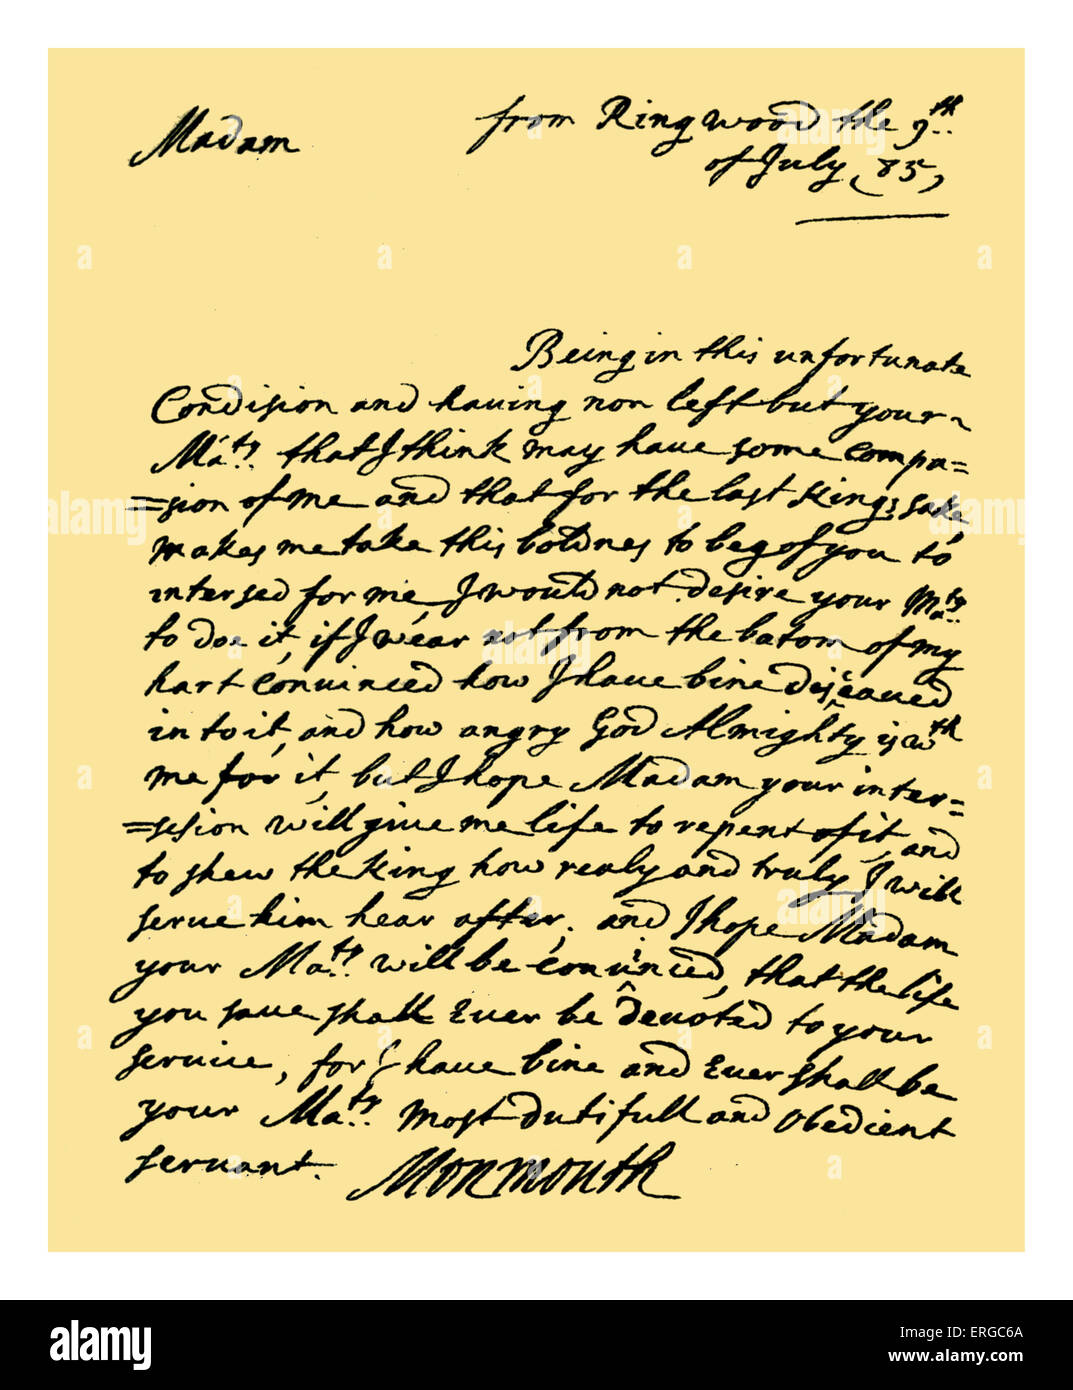 Madam
from Ringwood the 9th
of July, 85,
Being in this unfortunate
Condision and having non left but your
Ma.ty that I think may have some compa=
=sion of me and that for the last Kings sake
makes me take this boldnes to beg of you to
intersed for me I would not desire your Ma.ty
to doe it, if I wear not from the botom of my
hart convinced how I have bine disceaved
in to it, and how angry God Almighty is wth
me for it, but I hope Madam your inter=
=sesion will give me life to repent of it, and
to shew the King how realy and truly I will
serve him hear after, and I hope Madam
your Ma.ty will be convinced, that the life
you save shall Ever be devoted to your
service, for I have bine and Ever shall be
your Ma.ty most dutifull and obedient
servant. Monmouth
alamy
Image ID: ERGC6A
www.alamy.com